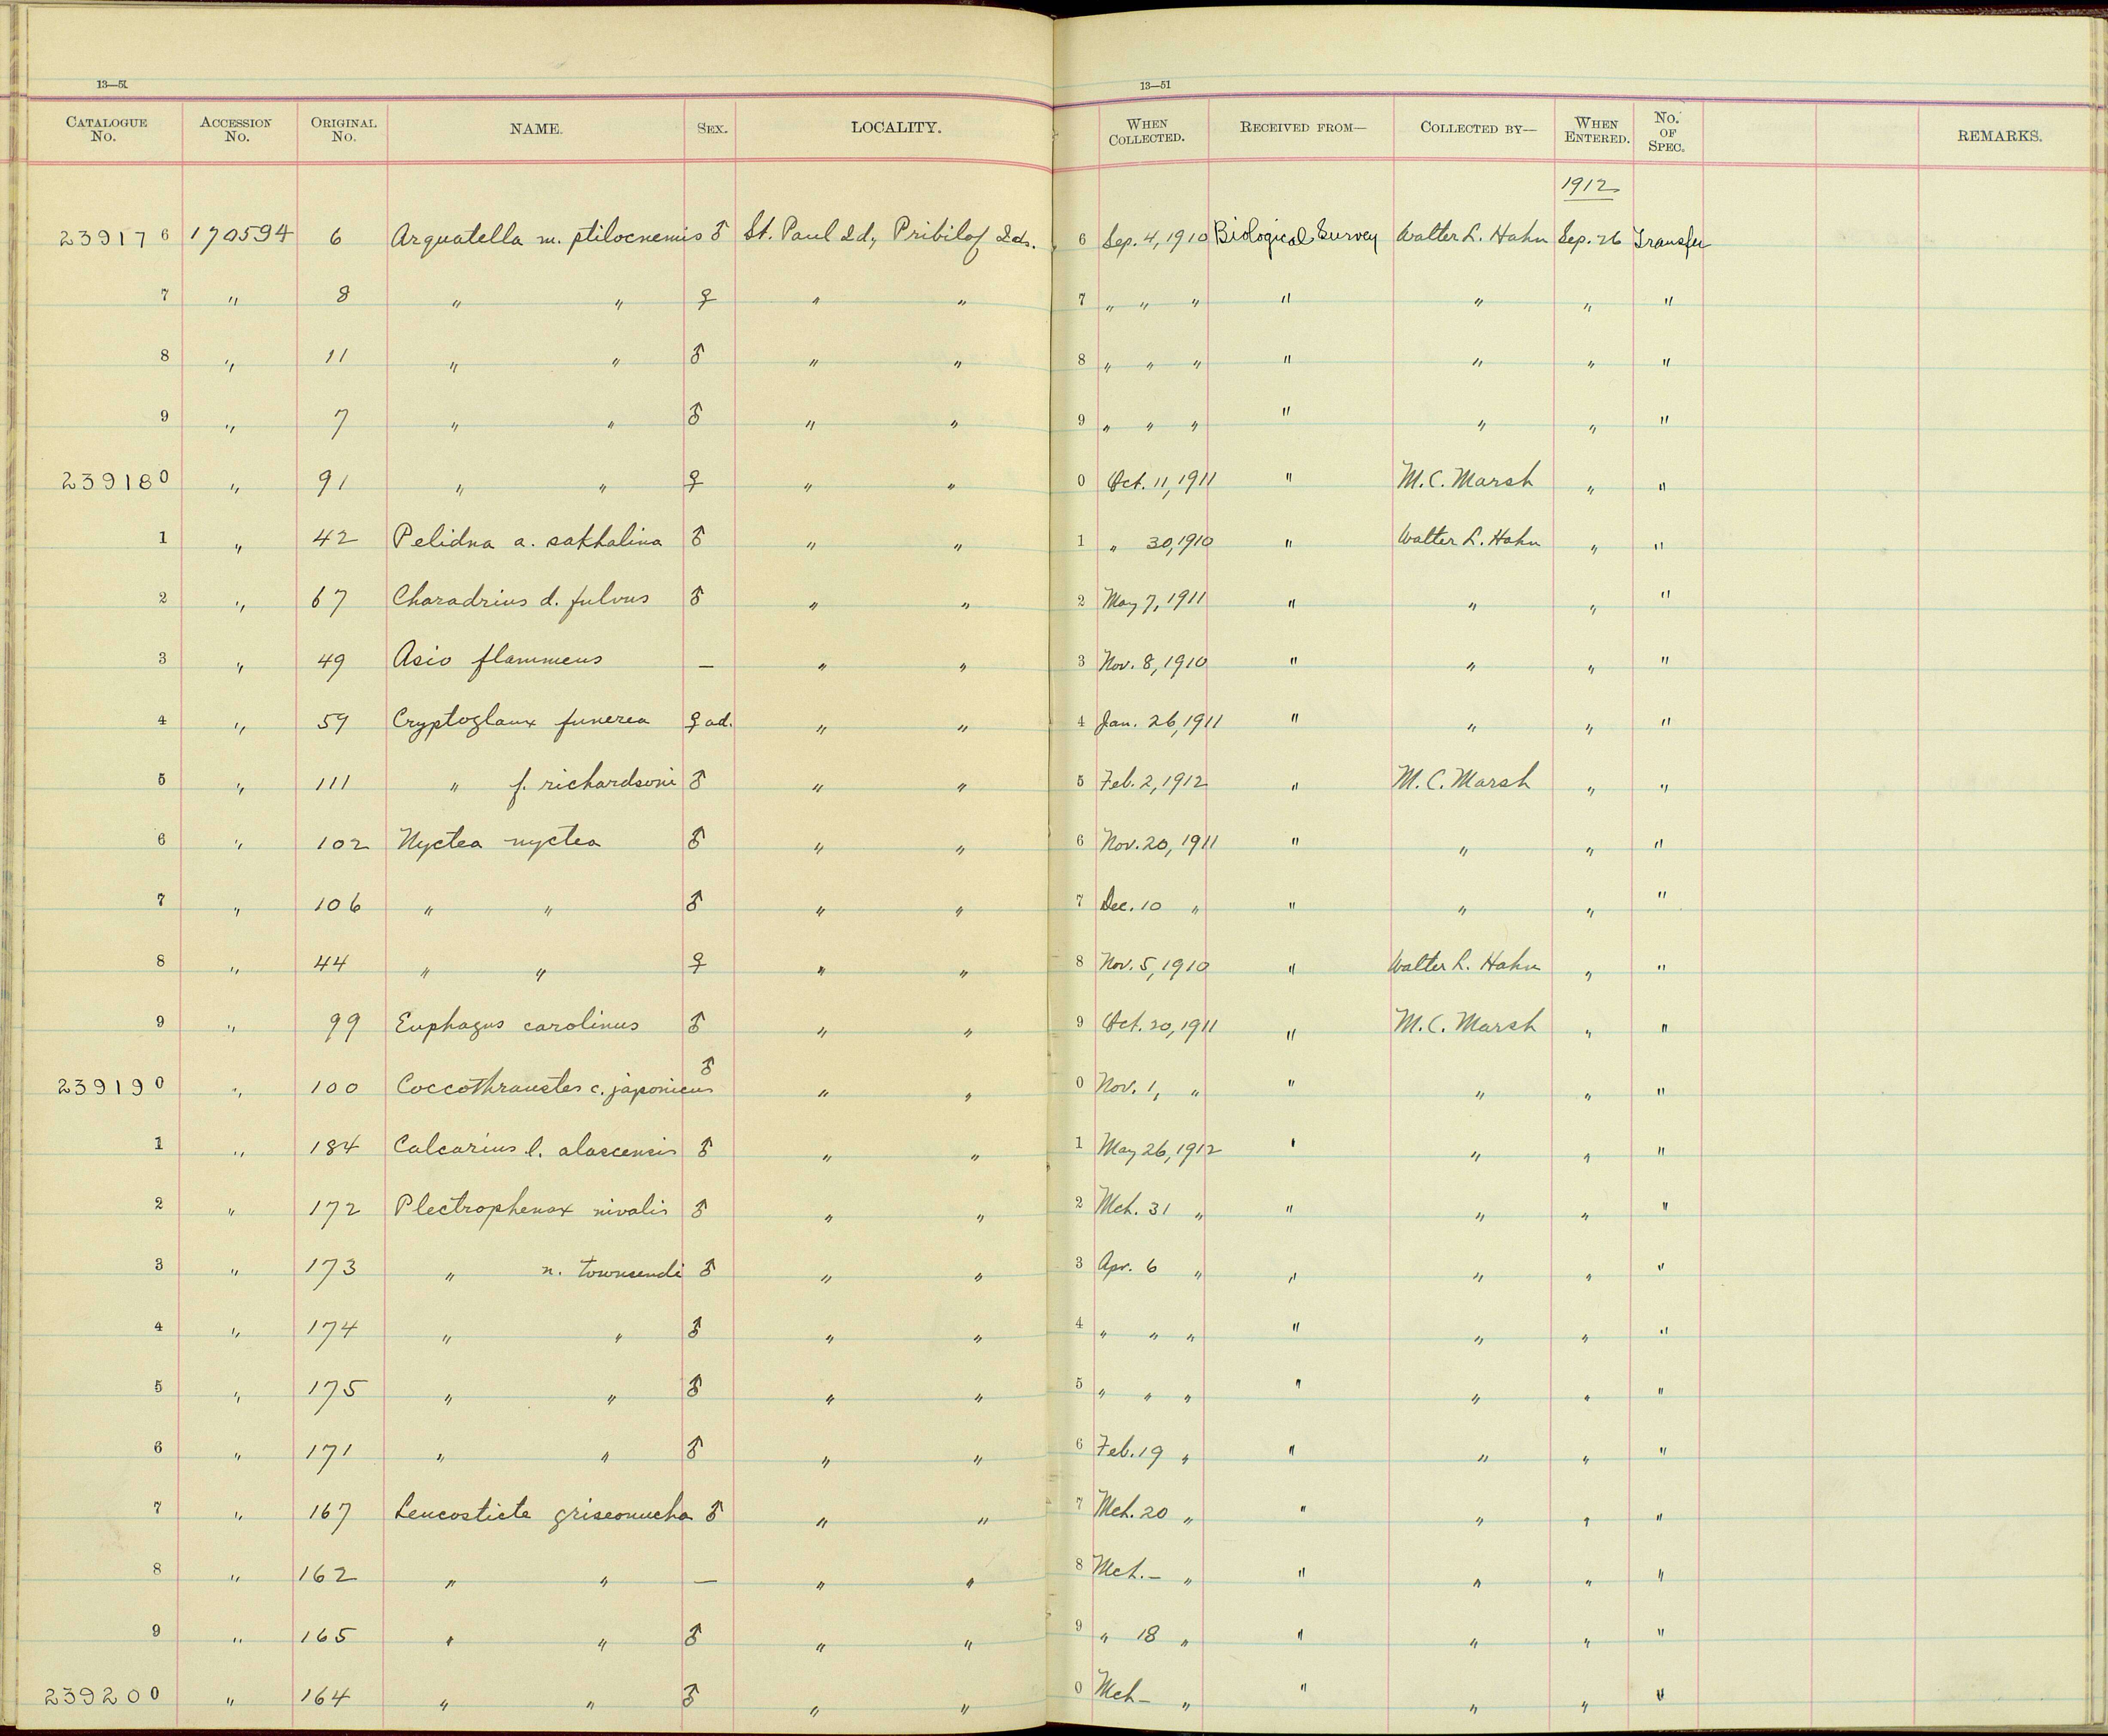 13—51 13—51
CATALOGUE No. ACCESSION No. ORIGINAL No. NAME. SEX. LOCALITY. WHEN COLLECTED. RECEIVED FROM— COLLECTED BY— WHEN ENTERED. No. OF SPEC. REMARKS.
1912
239176 170594 6 Arquatella m. ptilocnemis ♂ St. Paul Id., Pribilof Ids. 6 Sep. 4, 1910 Biological Survey Walter L. Hahn Sep. 26 Transfer
7 " 8 " " ♀ " " 7 " " " " " " "
8 " 11 " " ♂ " " 8 " " " " " " "
9 " 7 " " ♂ " " 9 " " " " " " "
239180 " 91 " " ♀ " " 0 Oct. 11, 1911 " M. C. Marsh " "
1 " 42 Pelidna a. sakhalina ♂ " " 1 " 30, 1910 " Walter L. Hahn " "
2 " 67 Charadrius d. fulvus ♂ " " 2 May 7, 1911 " " " "
3 " 49 Asio flammeus — " " 3 Nov. 8, 1910 " " " "
4 " 59 Cryptoglaux funerea ♀ ad. " " 4 Jan. 26, 1911 " " " "
5 " 111 " f. richardsoni ♂ " " 5 Feb. 2, 1912 " M. C. Marsh " "
6 " 102 Nyctea nyctea ♂ " " 6 Nov. 20, 1911 " " " "
7 " 106 " " ♂ " " 7 Dec. 10 " " " " "
8 " 44 " " ♀ " " 8 Nov. 5, 1910 " Walter L. Hahn " "
9 " 99 Euphagus carolinus ♂ " " 9 Oct. 20, 1911 " M. C. Marsh " "
239190 " 100 Coccothraustes c. japonicus ♂ " " 0 Nov. 1, " " " " "
1 " 184 Calcarius l. alascensis ♂ " " 1 May 26, 1912 " " " "
2 " 172 Plectrophenax nivalis ♂ " " 2 Mch. 31 " " " " "
3 " 173 " n. townsendi ♂ " " 3 Apr. 6 " " " " "
4 " 174 " " ♂ " " 4 " " " " " " "
5 " 175 " " ♂ " " 5 " " " " " " "
6 " 171 " " ♂ " " 6 Feb. 19 " " " " "
7 " 167 Leucosticte griseonucha ♂ " " 7 Mch. 20 " " " " "
8 " 162 " " — " " 8 Mch. — " " " " "
9 " 165 " " ♂ " " 9 " 18 " " " " "
239200 " 164 " " ♂ " " 0 Mch — " " " " "